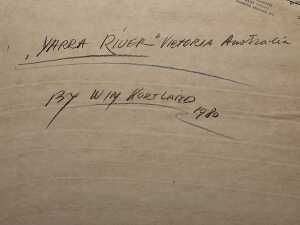 „YARRA RIVER" VICTORIA Australia
BY WIM KORTLAND
1980